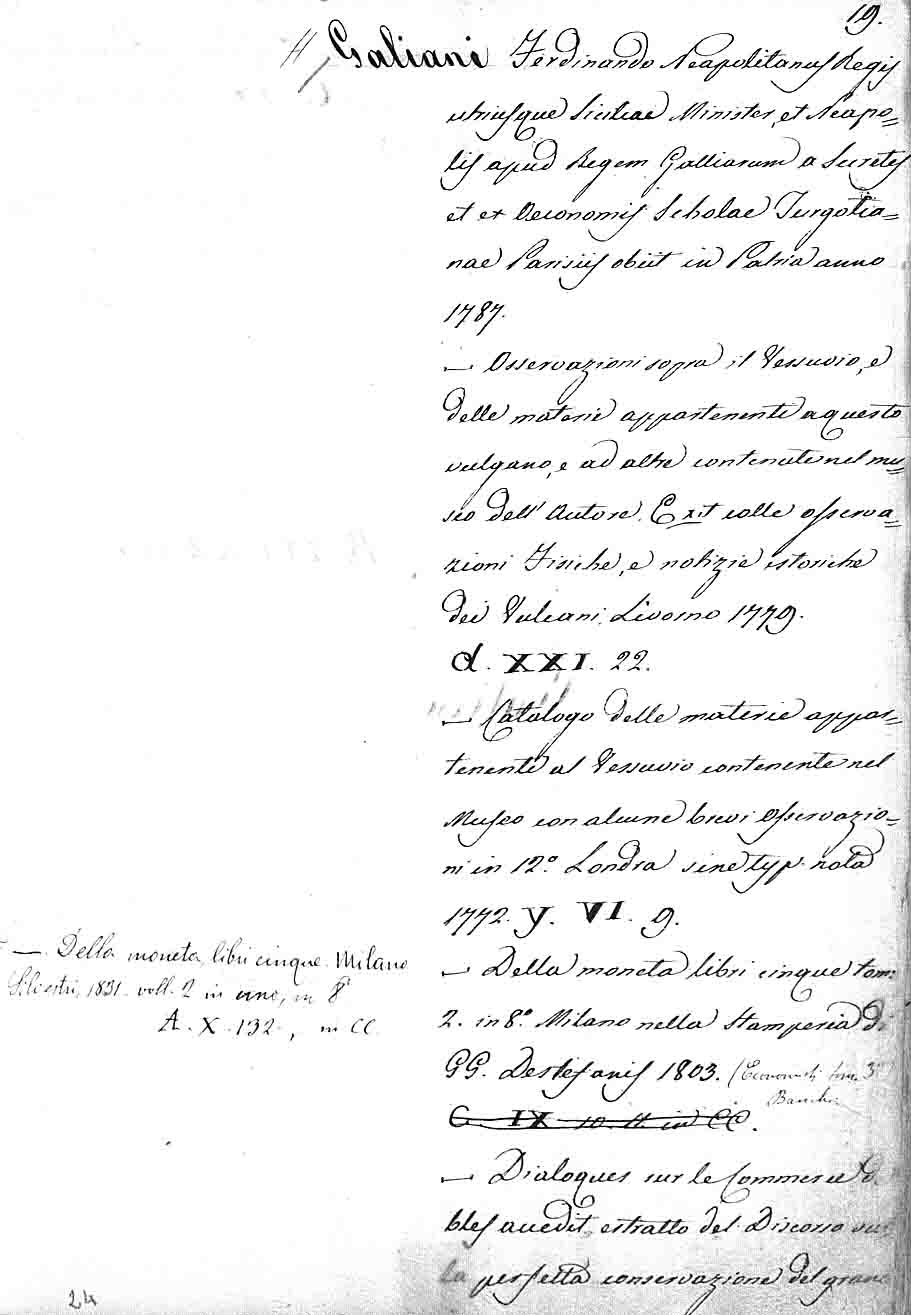 19.
H Galiani Ferdinando Neapolitanus Regis
utriusque Siciliae Minister, et Neapo=
lis apud Regem Galliarum a Secretis
et ex Oeconomis Scholae Turgotia=
nae Parisiis obiit in Patria anno
1787.
— Osservazioni sopra il Vessuvio, e
delle materie appartenenti a questo
vulgano, e ad altre contenute nel mu=
seo dell' Autore. Exit colle osserva=
zioni Fisiche, e notizie istoriche
dei Vulcani. Livorno 1779.
d. XXI. 22.
— Catalogo delle materie appar=
tenenti al Vessuvio contenente nel
Museo con alcune brevi osservazio=
ni in 12.º Londra sine typ. nota
1772. y. VI. 9.
— Della moneta, libri cinque. Milano
Silvestri, 1831. voll. 2 in uno, in 8º
A. X. 132., in CC.
— Della moneta libri cinque tom:
2. in 8.º Milano nella Stamperia di
GG. Destefanis 1803. (Economisti tom. 3
C. IX 10. 11. in CC.
— Dialogues sur le Commerce d.
bles avedit, estratto del Discorso
la perfetta conservazione del grano
24